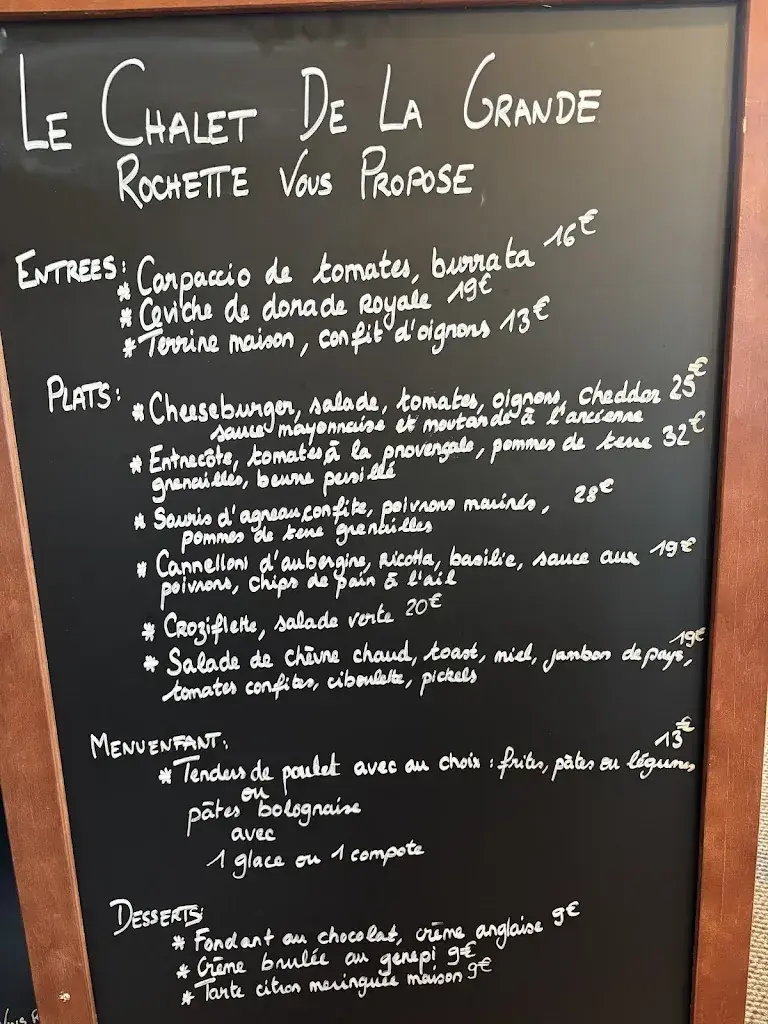 LE CHALET DE LA GRANDE
ROCHETTE VOUS PROPOSE
ENTREES: * Carpaccio de tomates, burrata 16€
* Ceviche de dorade Royale 19€
* Terrine maison, confit d'oignons 13€
PLATS: * Cheeseburger, salade, tomates, oignons, cheddar 25€
sauce mayonnaise et moutarde à l'ancienne
* Entrecôte, tomates à la provençale, pommes de terre 32€
grenailles, beurre persillé
* Souris d'agneau confite, poivrons marinés, 28€
pommes de terre grenailles
* Cannelloni d'aubergine, Ricotta, basilic, sauce aux 19€
poivrons, chips de pain à l'ail
* Croziflette, salade verte 20€
* Salade de chèvre chaud, toast, miel, jambon de pays, 19€
tomates confites, ciboulette, pickels
MENU ENFANT: 13€
* Tenders de poulet avec au choix : frites, pâtes ou légumes
ou
pâtes bolognaise
avec
1 glace ou 1 compote
DESSERTS:
* Fondant au chocolat, crème anglaise 9€
* Crème brulée au genepi 9€
* Tarte citron meringuée maison 9€